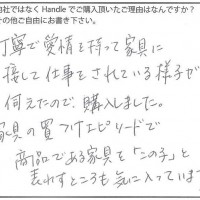 他社ではなく Handle でご購入頂いたご理由はなんですか?
その他ご自由にお書き下さい。
丁寧で愛情を持って家具に
接して仕事をされている様子が
伺えたので、購入しました。
家具の買付エピソードで
商品である家具を「この子」と
表わすところも気に入っています